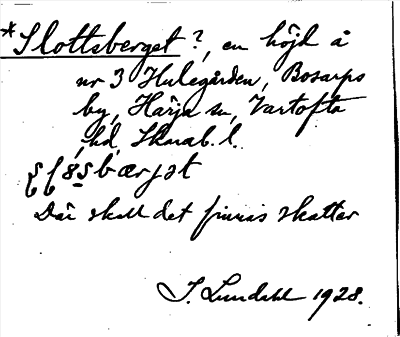 *Slottsberget ?, en höjd å
nr 3 Hulegården, Bosarps
by, Härja sn, Vartofta
hd, Skarab. l.
Där skall det finnas skatter
I. Lundahl 1928.